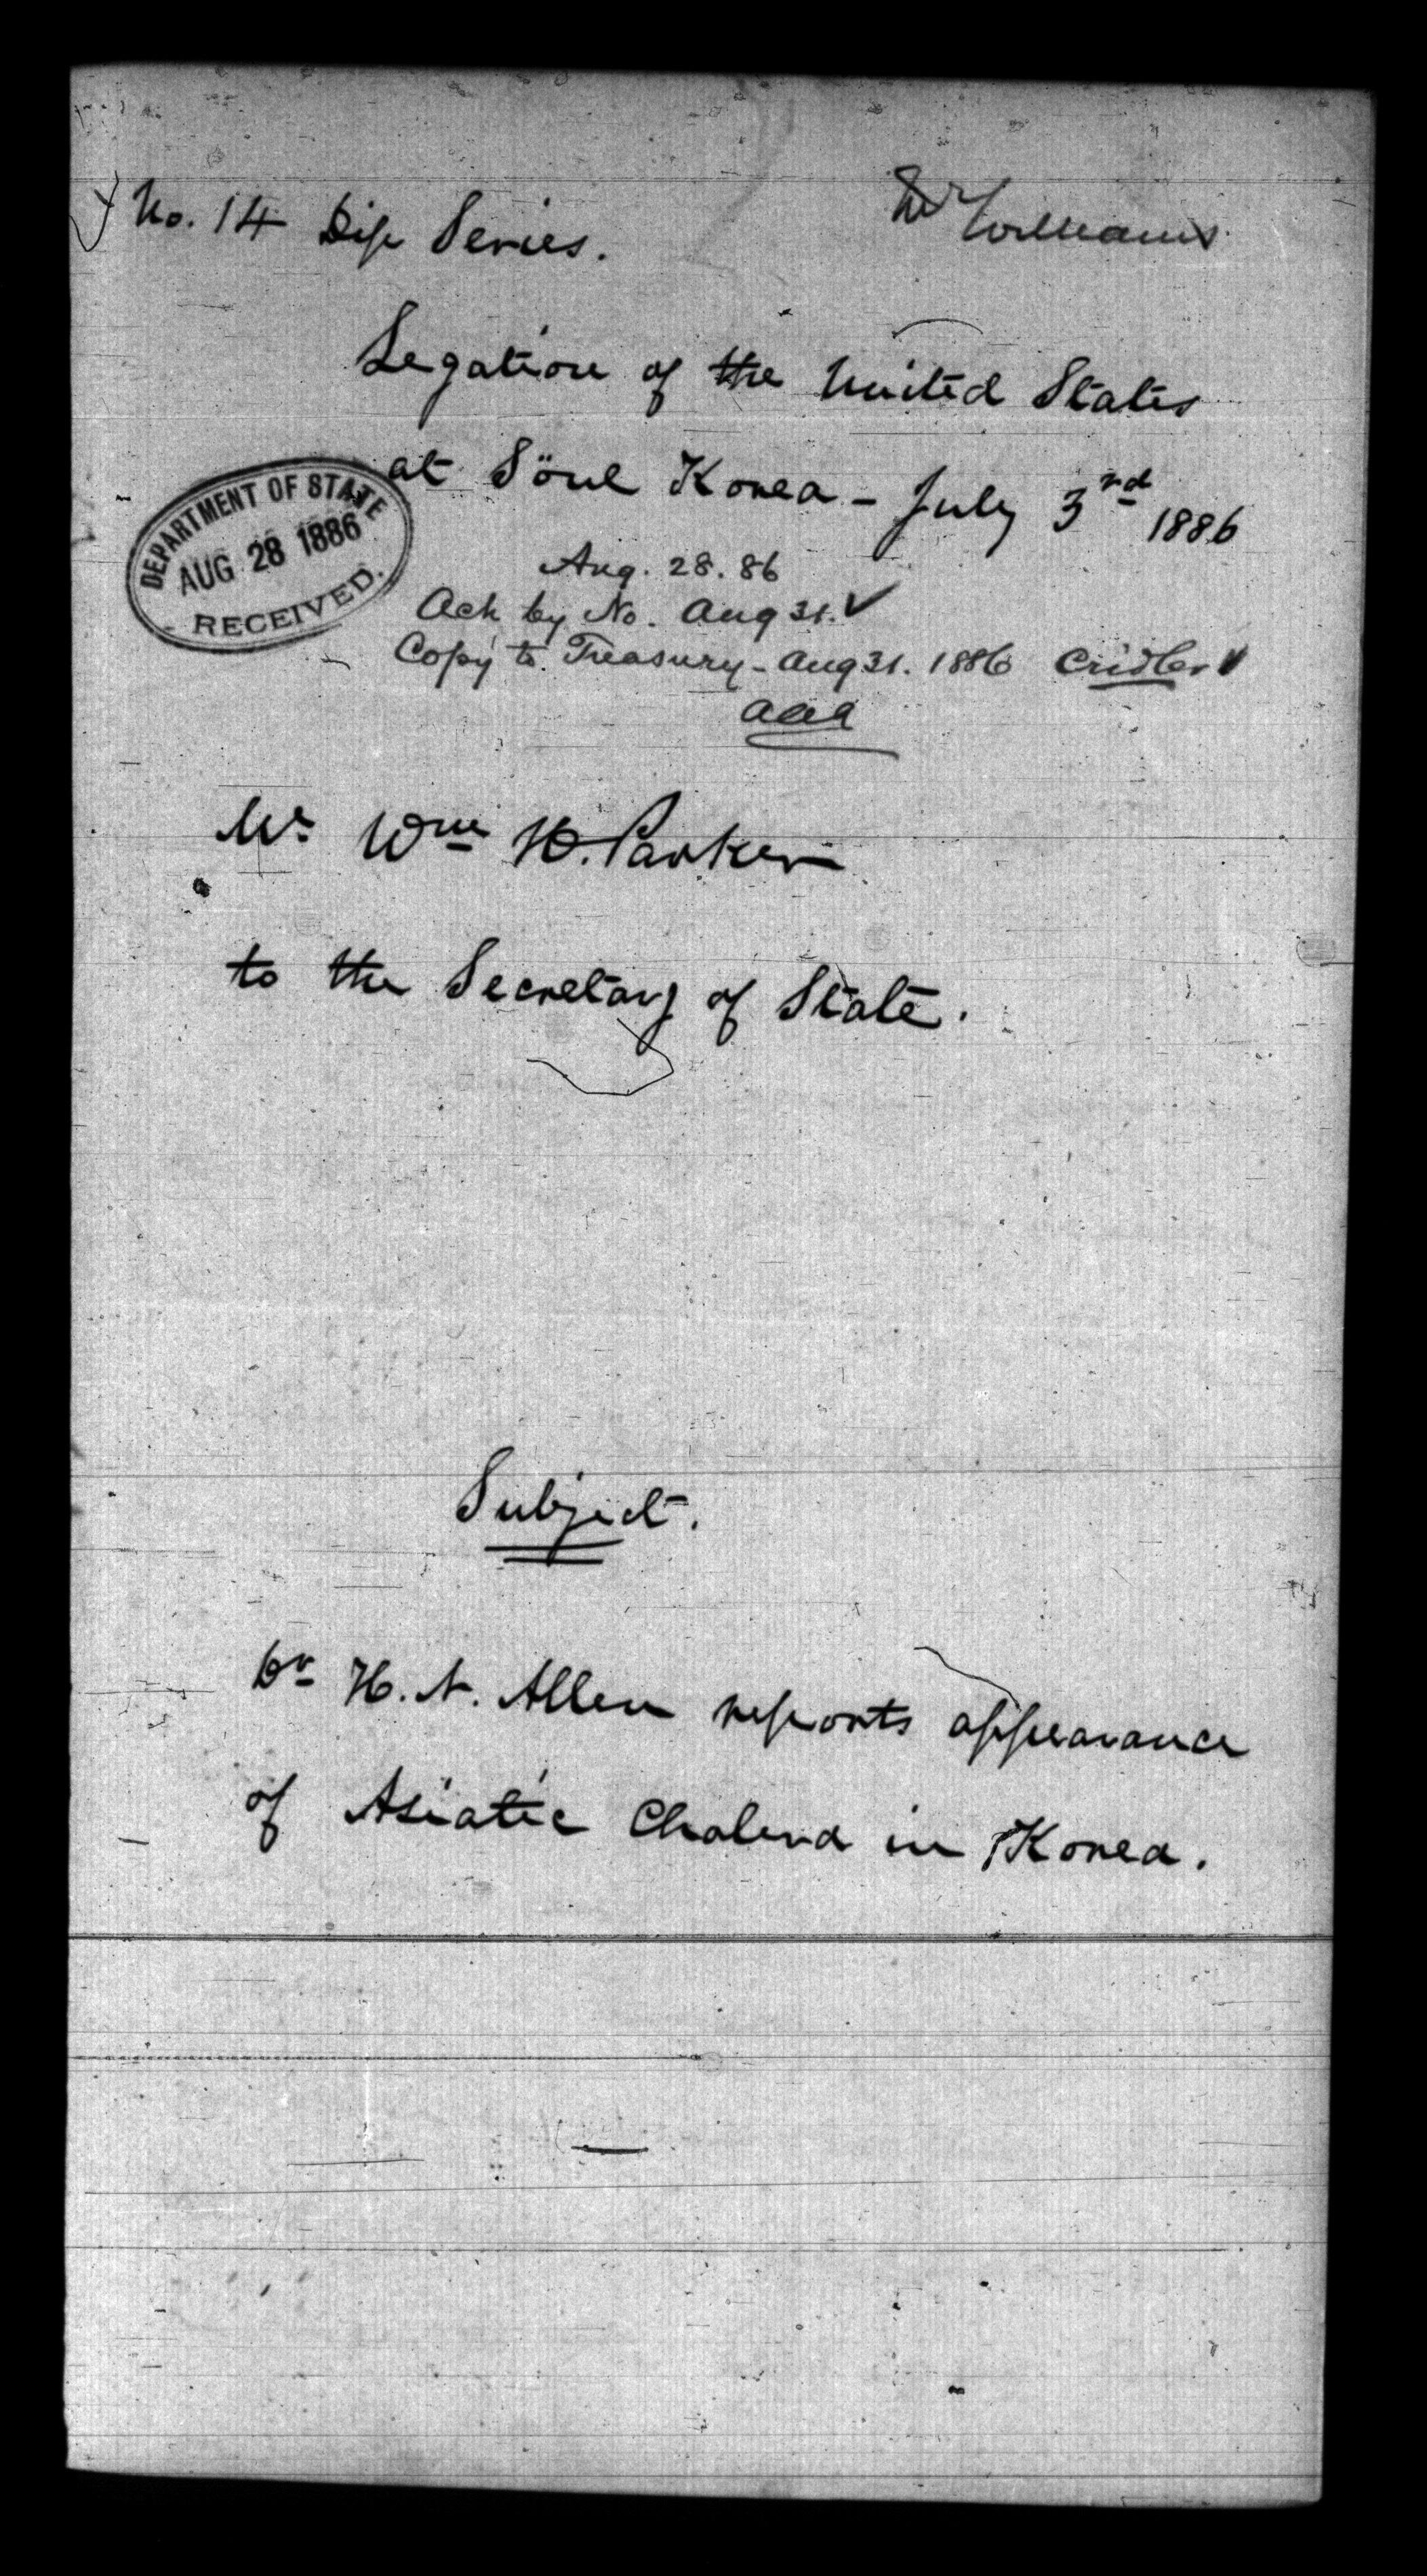 No. 14 Dip Series.
Mr Williams.
Legation of the United States
at Söul Korea - July 3rd 1886
DEPARTMENT OF STATE
AUG 28 1886
RECEIVED.
Aug. 28. 86
Ack by No. Aug 31. ✓
Copy to Treasury - Aug 31. 1886 Cridler ✓
Mr Wm H. Parker
to the Secretary of State.
Subject.
Dr H. N. Allen reports appearance
of Asiatic Cholera in Korea.